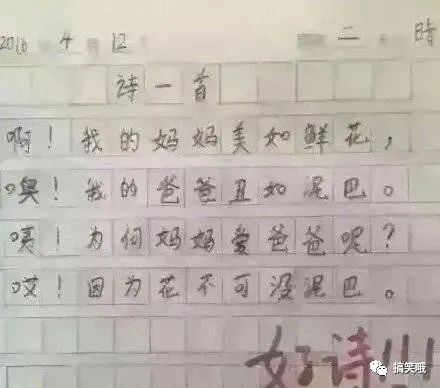 2016 4 12 二 时
诗一首
啊！我的妈妈美如鲜花，
噢！我的爸爸丑如泥巴。
咦！为何妈妈爱爸爸呢？
哎！因为花不可没泥巴。
好诗!!!
搞笑哦